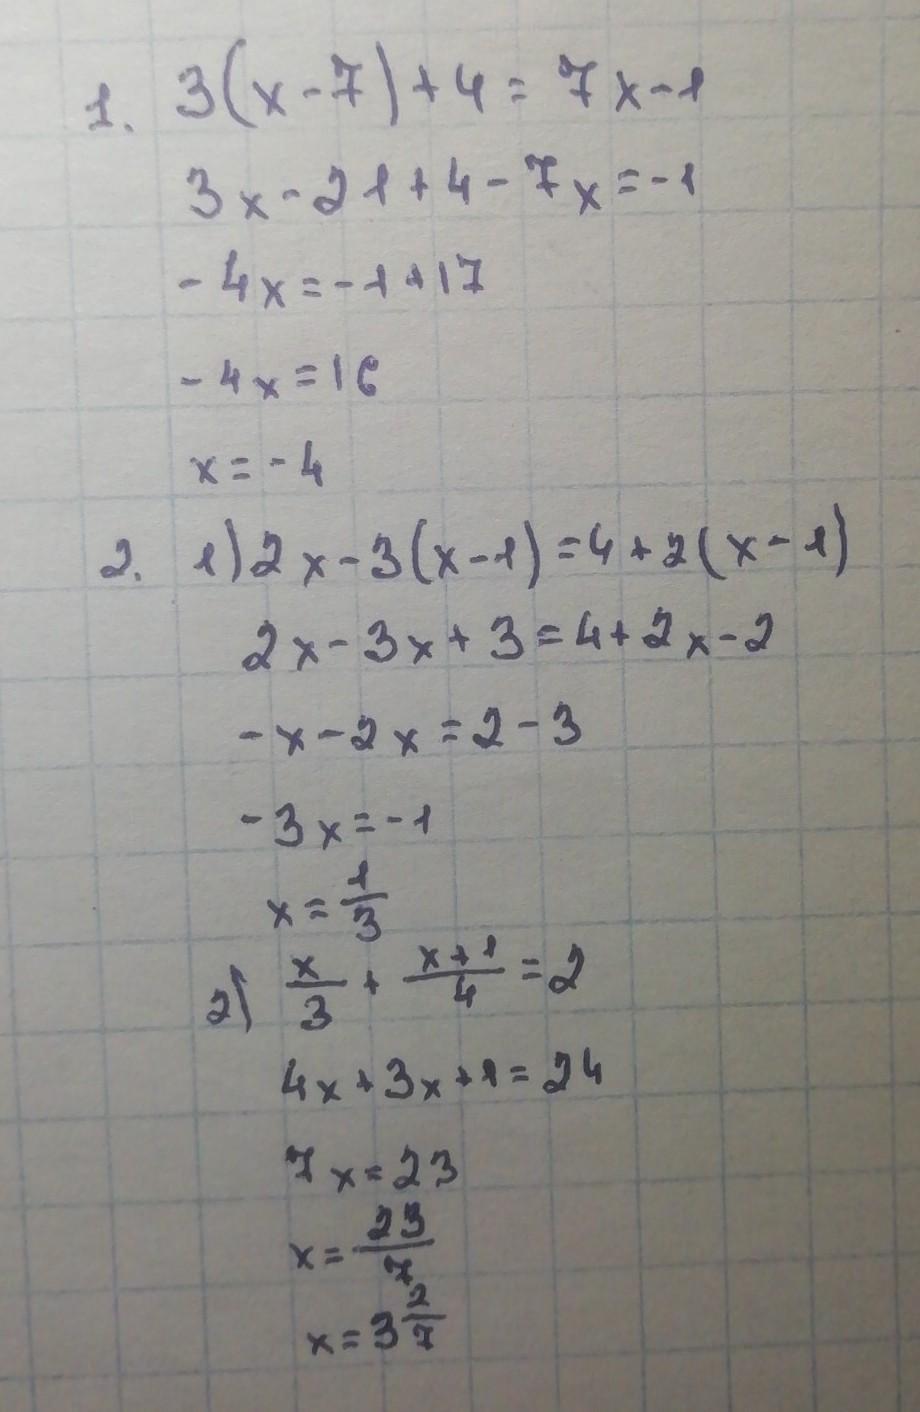 1. 3(x-7)+4=7x-1
3x-21+4-7x=-1
-4x=-1+17
-4x=16
x=-4
2. 1)2x-3(x-1)=4+2(x-1)
2x-3x+3=4+2x-2
-x-2x=2-3
-3x=-1
x=1/3
2) x/3+(x+1)/4=2
4x+3x+1=24
7x=23
x=23/7
x=3 2/7